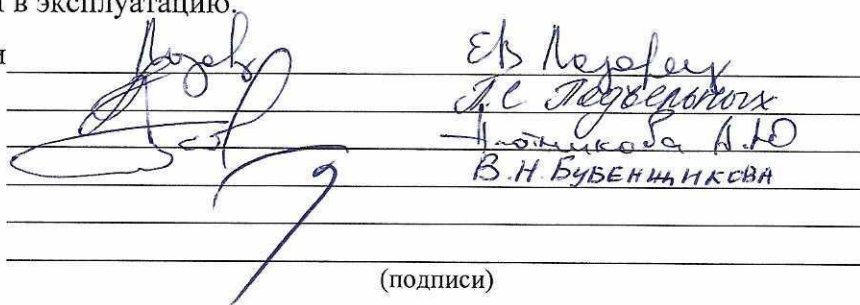 в эксплуатацию.
и
ЕВ Лазарец
Л.С Подъельных
Плотникова А.Ю
В.Н. Бубенщикова
(подписи)